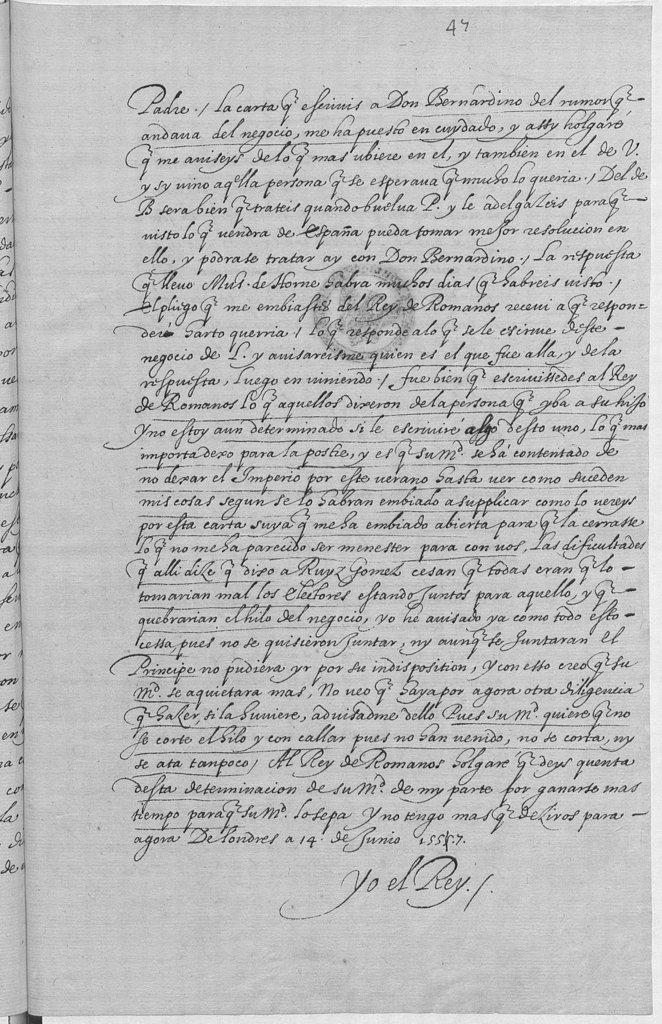 47
Padre. / la carta q̃ escrivis a Don Bernardino del rumor q̃
andava del negocio, me ha puesto en cuydado, y assy holgaré
q̃ me aviseys de lo q̃ mas ubiere en el, y tambien en el de V.
y sy vino aq̃lla persona q̃ se esperava q̃ mucho lo queria. / Del de
B sera bien q̃ trateis quando buelva P. y le adelgazeis para q̃
visto lo q̃ vendra de españa pueda tomar mejor resolucion en
ello, y podrase tratar ay con Don Bernardino. / La respuesta
q̃ llevo Mus. de Horne habra muchos dias q̃ habreis visto. /
el pliego q̃ me embiastes del Rey de Romanos recevi a q̃ respon=
der harto querria / lo q̃ responde a lo q̃ se le escrive deste
negocio de L. y avisareisme quien es el que fue alla, y de la
respuesta, luego en viniendo / fue bien q̃ escrivistedes al Rey
de Romanos lo q̃ aquellos dixeron de la persona q̃ yba a su hijo
Y no estoy aun determinado si le escrivire algo desto uno, lo q̃ mas
importa dexo para la postre, y es q̃ su Md. se há contentado de
no dexar el Imperio por este verano hasta ver como suceden
mis cosas segun se lo habran embiado a supplicar como lo vereys
por esta carta suya q̃ me ha embiado abierta para q̃ la cerrasse
lo q̃ no me ha parecido ser menester para con vos, Las dificultades
q̃ alli dize q̃ dixo a Ruyz Gomez cesan q̃ todas eran q̃ lo
tomarian mal los Electores estando juntos para aquello, y q̃
quebrarian el hilo del negocio, yo he avisado ya como todo esto
cessa pues no se quisieron juntar, ny aunq̃ se juntaran el
Principe no pudiera yr por su indisposition, Y con esto creo q̃ su
Md. se aquietara mas, No veo q̃ haya por agora otra diligencia
q̃ hazer, si la huviere, advisadme dello Pues su Md. quiere q̃ no
se corte el hilo y con callar pues no han venido, no se corta, ny
se ata tanpoco / Al Rey de Romanos holgaré q̃ deys quenta
desta determinacion de su Md. de my parte por ganarse mas
tiempo para q̃ su Md. lo sepa Y no tengo mas q̃ deziros para
agora De londres a 14. de Junio 1557.
Yo el Rey. /.